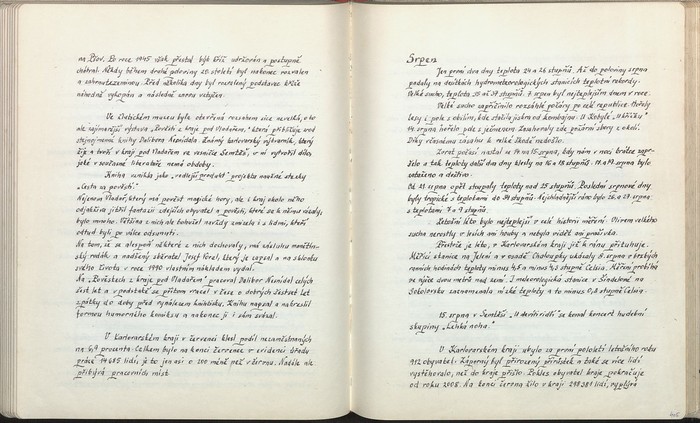 na Ptov. Po roce 1945 však přestal být kříž udržován a postupně
chátral. Někdy během druhé poloviny 20. století byl nakonec rozvalen
a zahrnut zeminou. Před několika dny byl rozvalený podstavec kříže
náhodně vykopán a následně zcela ztopten.
Ve žlutickém muzeu byla otevřená rozsahem sice nevelká, o to
ale zajímavější výstava „Pověsti z kraje pod Vladařem", která přibližuje
stejnojmennou knihu Dalibora Nesnídala. Známý karlovarský výtvarník, který
žije a tvoří v kraji pod Vladařem ve vesničce Semtěš, v ní vytvořil dílo,
jaké v současné literatuře nemá obdoby.
Kniha vznikla jako „vedlejší produkt" projektu naučné stezky
„Cesta za pověstí."
Nejenom Vladař, který má pověst magické hory, ale i kraj okolo něho
odjakživa jitřil fantazii zdejších obyvatel a pověstí, které se k němu vázaly,
bylo mnoho. Většina z nich ale bohužel navždy zmizela i s lidmi, kteří
odtud byli po válce odsunuti.
Na tom, že se alespoň některé z nich dochovaly, má zásluhu
rodák a nadšený sběratel Josef Corel, který je sepsal a na sklonku
svého života v roce 1990 vlastním nákladem vydal.
Na „Pověstech z kraje pod Vladařem" pracoval Dalibor Nesnídal celých
šest let a v podstatě se přitom vracel v čase o dobrých šestset let
zpátky do doby před vynálezem knihtisku. Knihu napsal a nakreslil
formou humorného komiksu a nakonec ji i sám svázal.
V Karlovarském kraji v červenci klesl podíl nezaměstnaných
na 6,9 procenta. Celkem bylo na konci července v evidenci úřadu
práce 14 685 lidí, je to jen asi o 200 méně než v červnu. Nadále ale
přibývá pracovních míst.
Srpen
Jen první dva dny teplota 24 a 26 stupňů. Až do poloviny srpna
padaly na desítkách hydrometeorologických stanicích teplotní rekordy.
Velké sucho, teplota 35 až 37 stupňů. 7. srpen byl nejteplejším dnem v roce.
Velké sucho zapříčinilo rozsáhlé požáry po celé republice. Hořely
lesy i pole s obilím, kde stačila jiskra od kombajnu. U Kobylé „U křížku"
14. srpna hořelo pole s ječmenem. Zasahovaly zde požární sbory z okolí.
Díky včasnému zásahu k velké škodě nedošlo.
Zvrat počasí nastal ze 14 na 15. srpna, kdy nám v noci krátce zapr-
šelo a tak teploty další dva dny klesly na 16 a 18 stupňů. 18. a 19. srpna bylo
zataženo a deštivo.
Od 21. srpna opět stoupaly teploty nad 25 stupňů. Poslední srpnové dny
byly tropické s teplotami do 34 stupňů. Nejchladnější ráno bylo 26. a 27. srpna
s teplotami 7 a 9 stupňů.
Letošní léto bylo nejteplejší v celé historii měření. Vlivem velkého
sucha nerostly v lesích ani houby a nebylo vidět ani pravčíka.
Přestože je léto, v Karlovarském kraji již k ránu přituhuje.
Měřící stanice na Jelení a v osadě Chaloupky ukázaly 8. srpna v brzkých
ranních hodinách teploty minus 4,5 a minus 4,3 stupně Celsia. Měření probíhá
ve výšce dvou metrů nad zemí. I meteorologická stanice v Šindelové na
Sokolovsku zaznamenala nízké teploty a to minus 0,8 stupně Celsia.
15. srpna v Semtěši „U devíti lidí" se konal koncert hudební
skupiny „Lehká noha."
V Karlovarském kraji ubylo za první pololetí letošního roku
912 obyvatel. Záporný byl přirozený přírůstek a také se více lidí
vystěhovalo, než do kraje přišlo. Pokles obyvatel kraje pokračuje
od roku 2008. Na konci června žilo v kraji 298 381 lidí, vyplývá